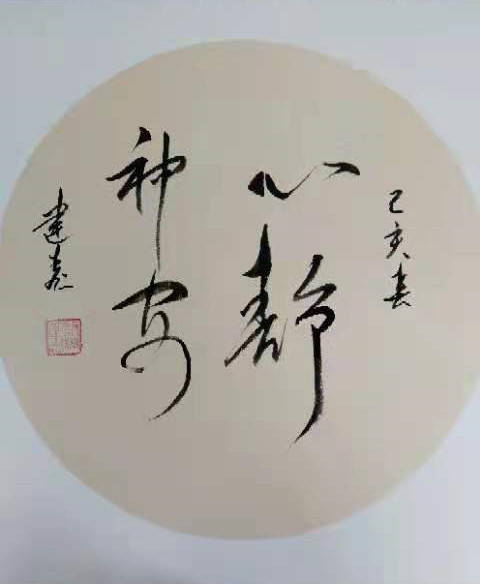 己亥春
心静
神安
建